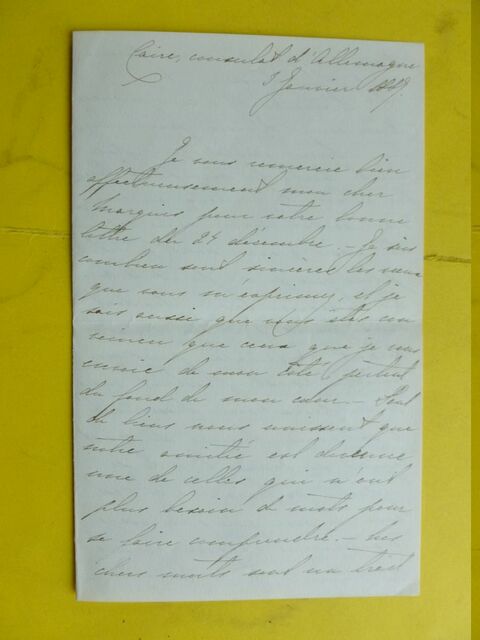 Caire, consulat d'Allemagne
3 Janvier 1889.
Je vous remercie bien
affectueusement mon cher
Marquis pour votre bonne
lettre du 24 décembre. – Je sais
combien sont sincères les vœux
que vous m'exprimez, et je
sais aussi que vous êtes con
vaincu que ceux que je vous
envoie de mon côté partent
du fond de mon cœur. – Tant
de liens nous unissent que
notre amitié est devenue
une de celles qui n'ont
plus besoin de mots pour
se faire comprendre. – Les
chers morts sont un trait